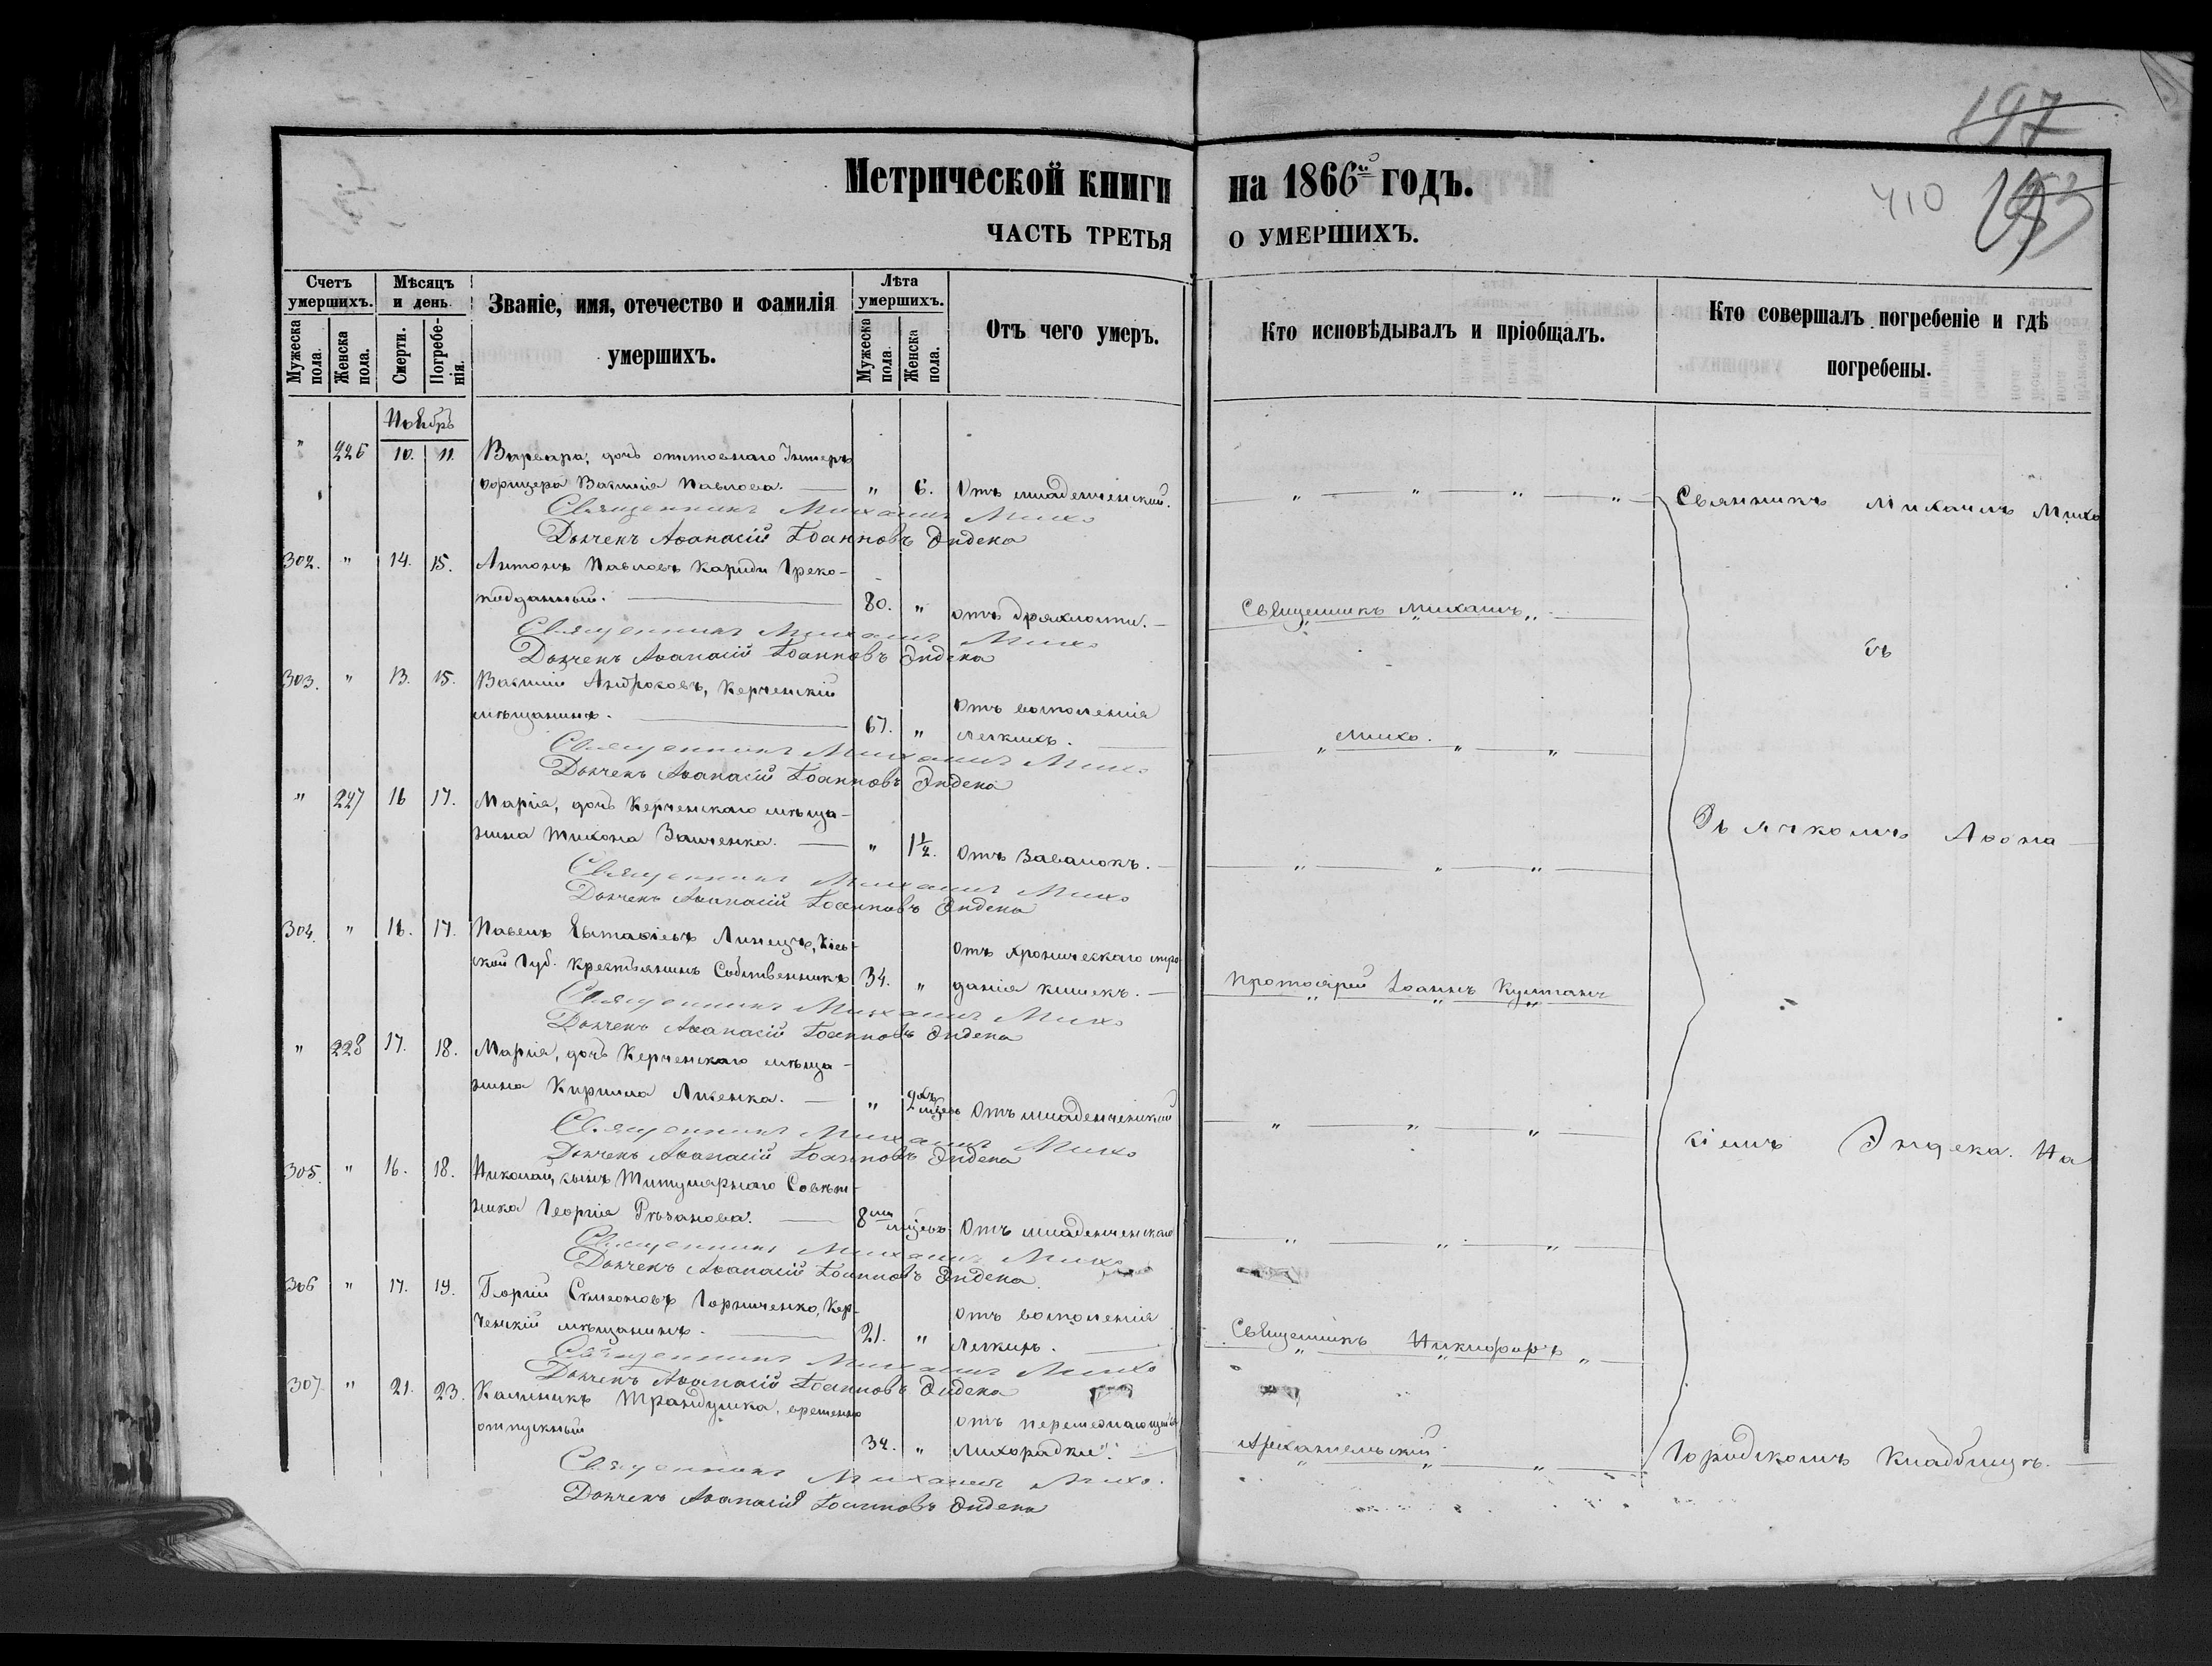 197
410
Метрической книги на 1866й годъ.
ЧАСТЬ ТРЕТЬЯ О УМЕРШИХЪ.
Счетъ умершихъ.
Мужеска пола.
Женска пола.
Мѣсяцъ и день
Смерти.
Погребенія.
Званіе, имя, отечество и фамилія умершихъ.
Лѣта умершихъ.
Мужеска пола.
Женска пола.
Отъ чего умеръ.
Кто исповѣдывалъ и пріобщалъ.
Кто совершалъ погребеніе и гдѣ погребены.
Ноябрь
" 226 10. 11. Варвара, дочь отставнаго Унтеръ
офицера Василія Павлова. " 6. Отъ младенческий.
Священникъ Михаилъ Михо
Дьячекъ Аѳанасій Іоанновъ Эндека
302. " 14. 15. Антонъ Павловъ Кариди Греко-
подданный. 80. " отъ дряхлости. Священникъ Михаилъ
Священникъ Михаилъ Михо
Дьячекъ Аѳанасій Іоанновъ Эндека
303. " 13. 15. Василій Андроковъ, Керченскій
мѣщанинъ. 67. " Отъ воспаленія
легкихъ. Михо.
Священникъ Михаилъ Михо
Дьячекъ Аѳанасій Іоанновъ Эндека
" 227 16 17. Марія, дочь Керченскаго мѣща-
нина Тихона Заиченка. " 1½. Отъ завалокъ.
Священникъ Михаилъ Михо
Дьячекъ Аѳанасій Іоанновъ Эндека
304. " 16. 17. Павелъ Евстафіевъ Липецъ, Кіев-
ской Губ. крестьянинъ Собственникъ 34. " Отъ хроническаго стра-
данія кишекъ. Протоіерей Іоаннъ Кумпанъ
Священникъ Михаилъ Михо
Дьячекъ Аѳанасій Іоанновъ Эндека
" 228 17. 18. Марія, дочь Керченскаго мѣща-
нина Кирилла Лисенка. " 2хъ мѣсяц Отъ младенческий
Священникъ Михаилъ Михо
Дьячекъ Аѳанасій Іоанновъ Эндека
305. " 16. 18. Николай, сынъ Титулярнаго Совѣт-
ника Георгія Рѣзанова. 8ми мѣсяц. Отъ младенческаго
Священникъ Михаилъ Михо
Дьячекъ Аѳанасій Іоанновъ Эндека
306 " 17. 19. Георгій Симеоновъ Горпиченко, Кер-
ченскій мѣщанинъ. 21. " Отъ воспаленія
легкихъ. Священникъ Никифоръ
Священникъ Михаилъ Михо
Дьячекъ Аѳанасій Іоанновъ Эндека
307. " 21. 23. Калиникъ Трандушка, временно
отпускный 34. " Отъ перемежающейся
лихорадки. Архангельскій
Священникъ Михаилъ Михо.
Дьячекъ Аѳанасій Іоанновъ Эндека
Свянникъ Михаилъ Михо
съ
Дьячкомъ Аѳона
сіемъ Эндека. На
Городскомъ Кладбищѣ.